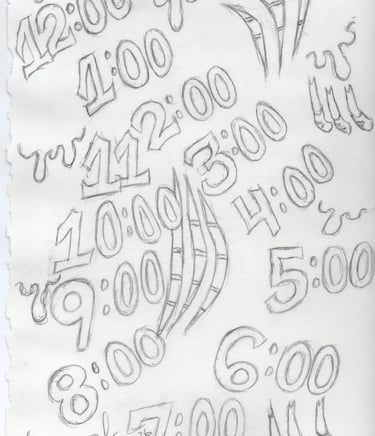 12:00
1:00
2:00
11
3:00
4:00
10:00
9:00
5:00
8:00
6:00
7:00